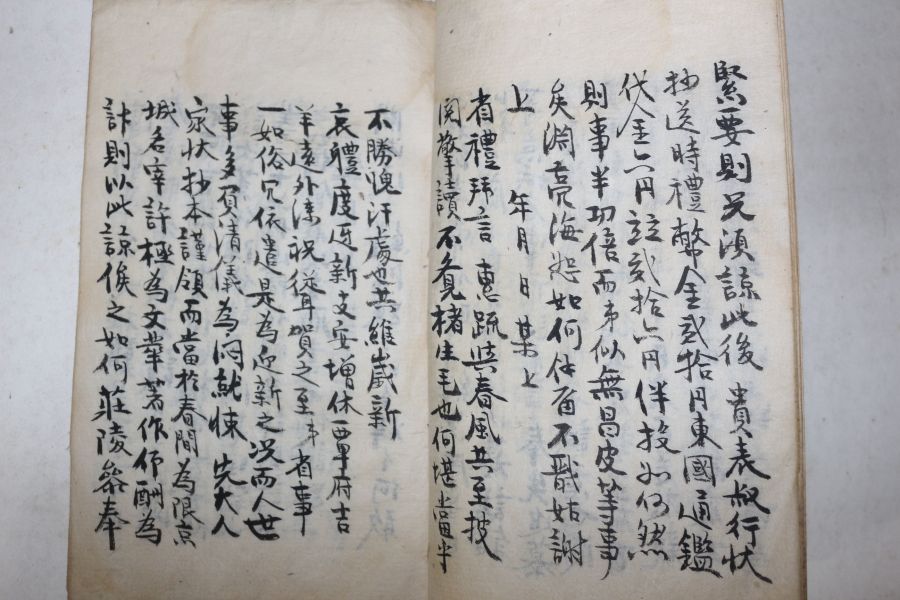 緊要則兄須諒此後 貴表叔行狀
抄送時禮幣金貳拾円東國通鑑
代金六円並貳拾六円伴投如何然
則事半功倍而弟似無昌皮等事
矣淵亮海恕如何什留不戩姑謝
上 年 月 日 某上
省禮拜言 惠疏與春風共至披
閱擎讀不覺楮生毛也何堪當乎
不勝愧汗處也共維歲新
哀體度迓新支安增休覃府吉
羊遠外溱祝從聳賀之至弟省事
一如俗冗依遣是為迎新之况而人世
事多負清儀為悶献悚 先大人
家狀抄本謹領而當於春間為限京
城名宰許極為文華著作仰酬為
計則以此諒俟之如何莊陵叅奉